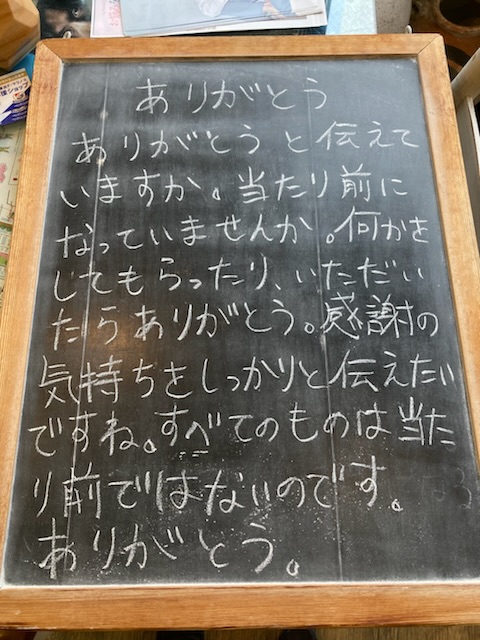 ありがとう
ありがとうと伝えて
いますか。当たり前に
なっていませんか。何かを
してもらったり、いただい
たらありがとう。感謝の
気持ちをしっかりと伝えたい
ですね。すべてのものは当た
り前ではないのです。
ありがとう。